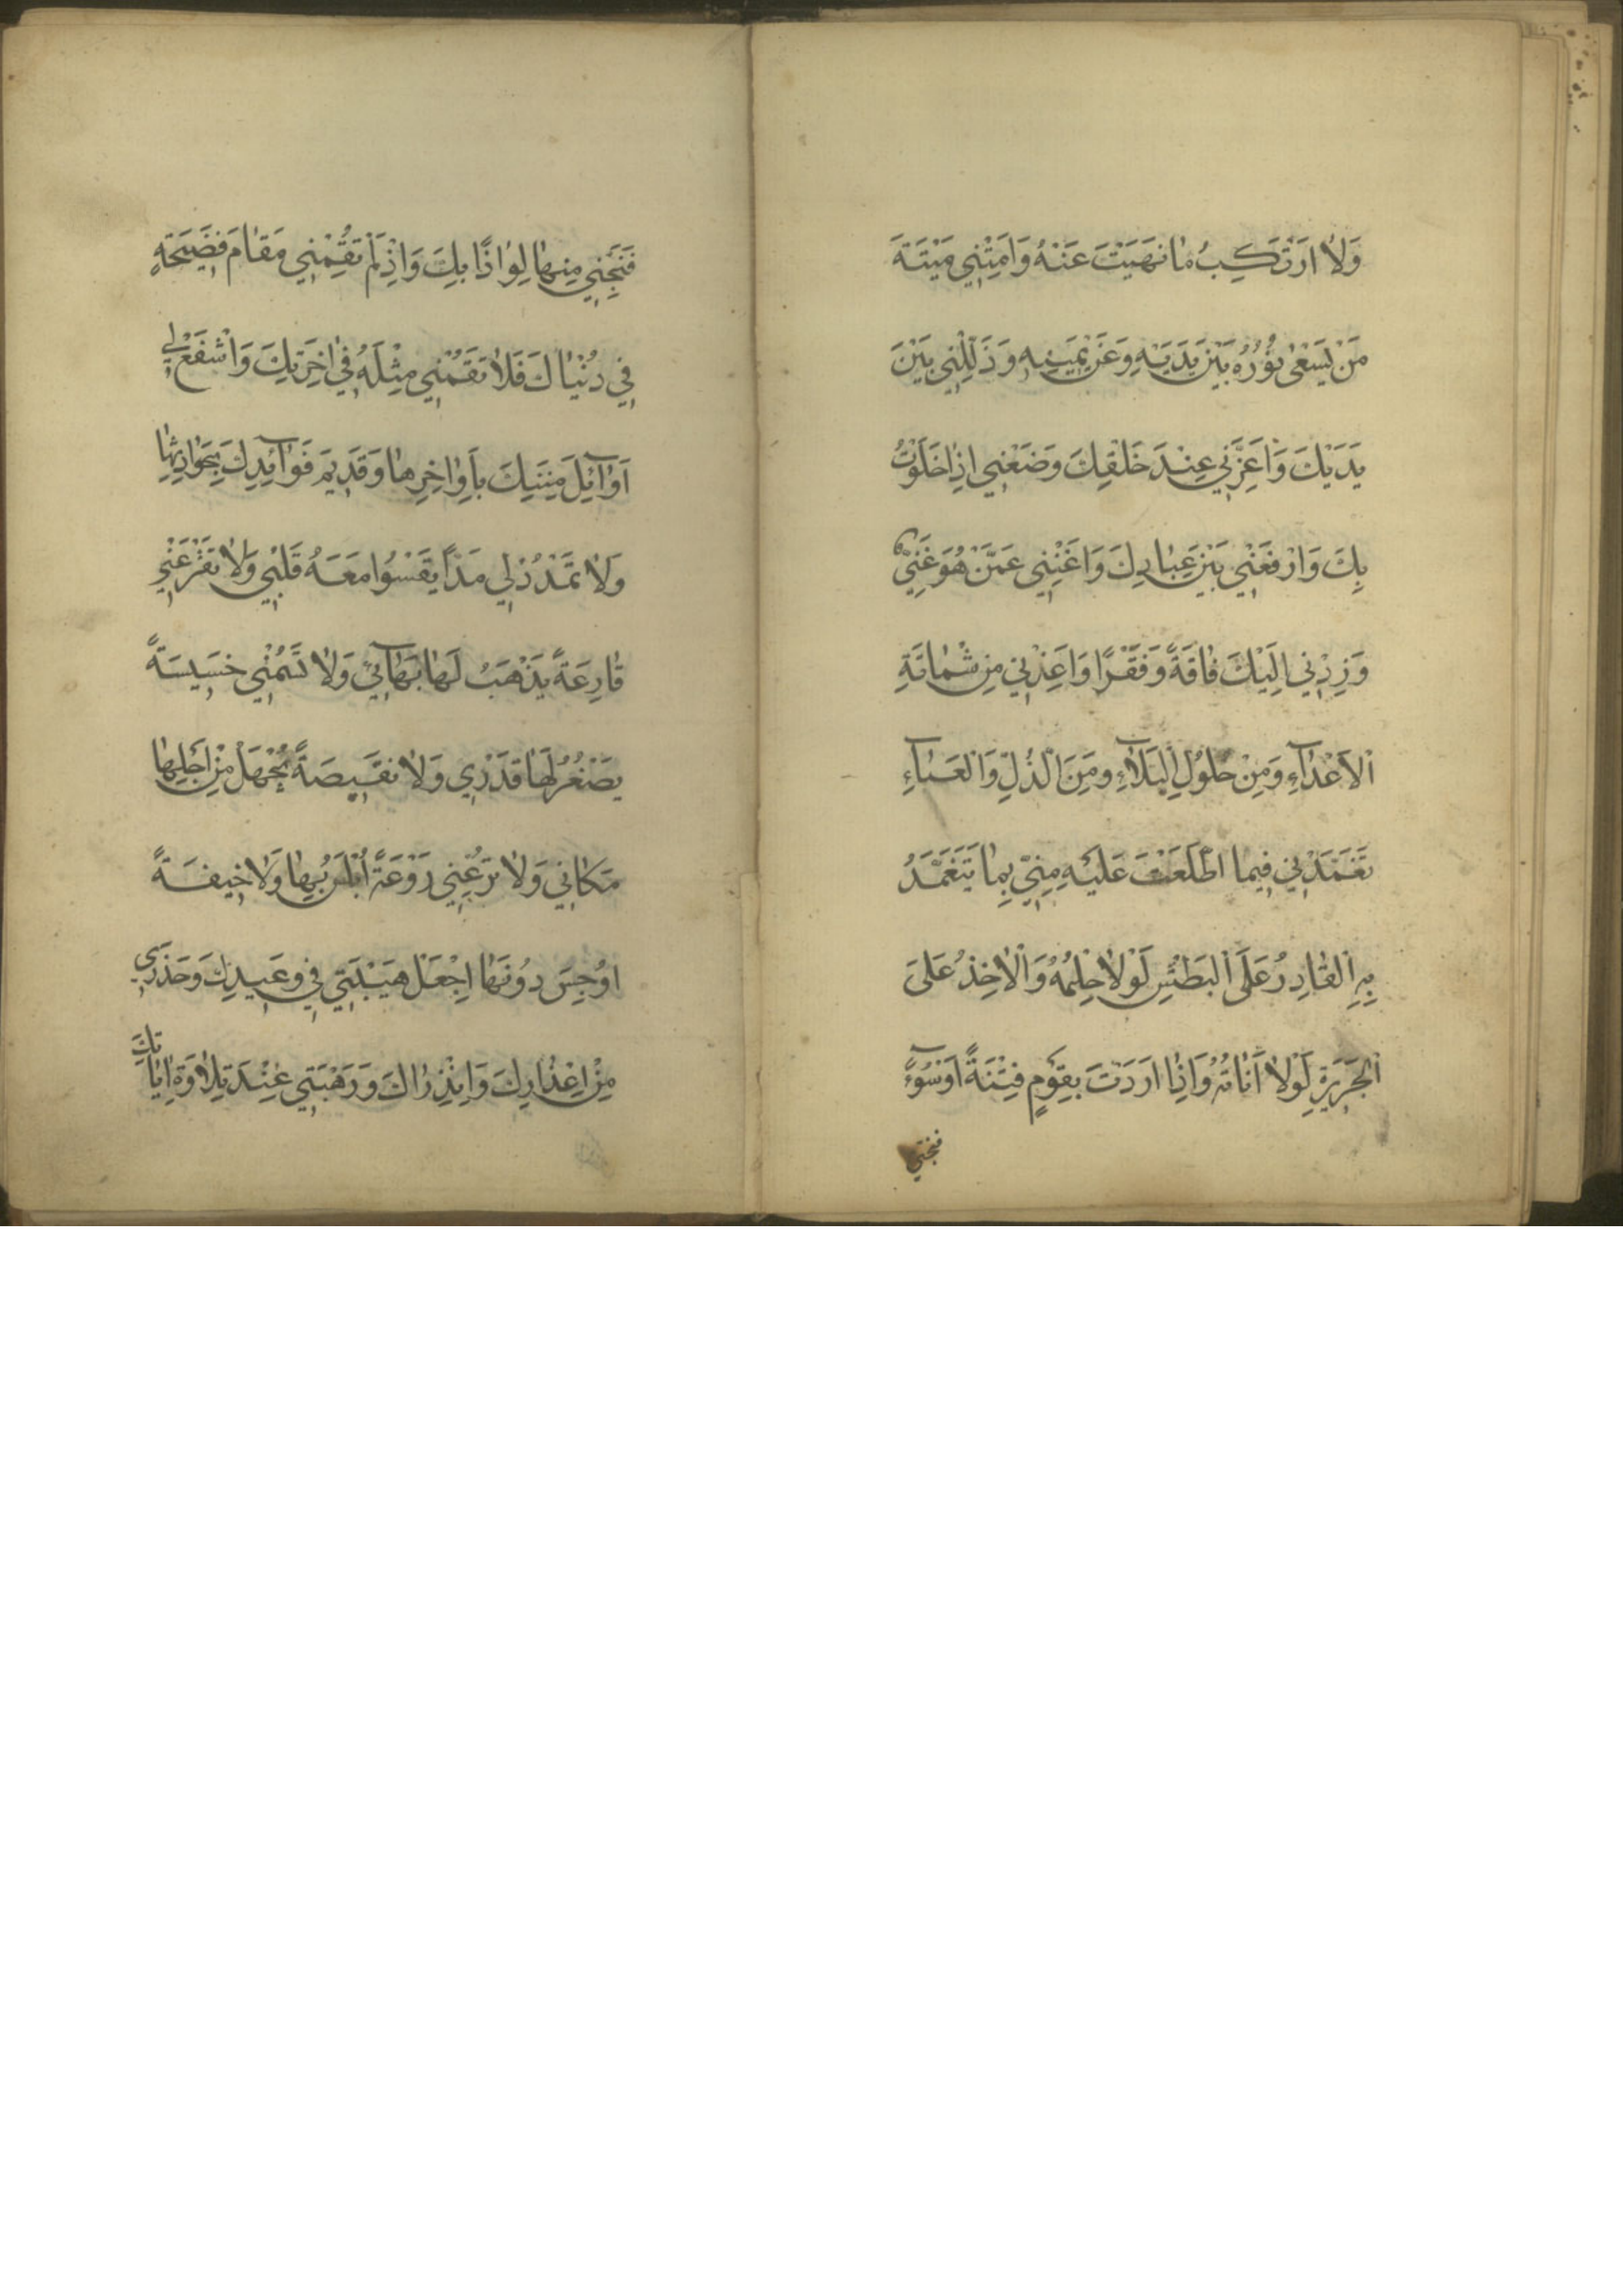 وَلَا اَرْتَكِبُ مَا نَهَيْتَ عَنْهُ وَاَمِتْنِي مَيْتَةَ
مَنْ يَسْعٰى نُورُهُ بَيْنَ يَدَيْهِ وَعَنْ يَمِينِهِ وَذَلِّلْنِي بَيْنَ
يَدَيْكَ وَاَعِزَّنِي عِنْدَ خَلْقِكَ وَضَعْنِي اِذَا خَلَوْتُ
بِكَ وَارْفَعْنِي بَيْنَ عِبَادِكَ وَاَغْنِنِي عَمَّنْ هُوَ غَنِيٌّ
وَزِدْنِي اِلَيْكَ فَاقَةً وَفَقْرًا وَاَعِذْنِي مِنْ شَمَاتَةِ
الْاَعْدَآءِ وَمِنْ حُلُولِ الْبَلَآءِ وَمِنَ الذُّلِّ وَالْعَنَآءِ
تَغَمَّدْنِي فِيمَا اطَّلَعْتَ عَلَيْهِ مِنِّي بِمَا يَتَغَمَّدُ
بِهِ الْقَادِرُ عَلَى الْبَطْشِ لَوْلَا حِلْمُهُ وَالْاٰخِذُ عَلَى
الْجَرِيرَةِ لَوْلَا اَنَاتُهُ وَاِذَا اَرَدْتَ بِقَوْمٍ فِتْنَةً اَوْ سُوٓءً
فنجني
فَنَجِّنِي مِنْهَا لِوَاذًا بِكَ وَاِذْ لَمْ تُقِمْنِي مَقَامَ فَضِيحَةٍ
فِي دُنْيَاكَ فَلَا تُقِمْنِي مِثْلَهُ فِي اٰخِرَتِكَ وَاشْفَعْ لِي
اَوَآئِلَ مِنَنِكَ بِاَوَاخِرِهَا وَقَدِيمَ فَوَآئِدِكَ بِحَوَادِثِهَا
وَلَا تَمْدُدْ لِي مَدًّا يَقْسُوا مَعَهُ قَلْبِي وَلَا تَقْرَعْنِي
قَارِعَةً يَذْهَبُ لَهَا بَهَآئِي وَلَا تَسُمْنِي خَسِيسَةً
يَصْغُرُ لَهَا قَدْرِي وَلَا نَقِيصَةً يُجْهَلُ مِنْ اَجْلِهَا
مَكَانِي وَلَا تَرُعْنِي رَوْعَةً اُبْلِسُ بِهَا وَلَا خِيفَةً
اُوجِسُ دُونَهَا اِجْعَلْ هَيْبَتِي فِي وَعِيدِكَ وَحَذَرِي
مِنْ اِعْذَارِكَ وَاِنْذَارِكَ وَرَهْبَتِي عِنْدَ تِلَاوَةِ اٰيَاتِكَ